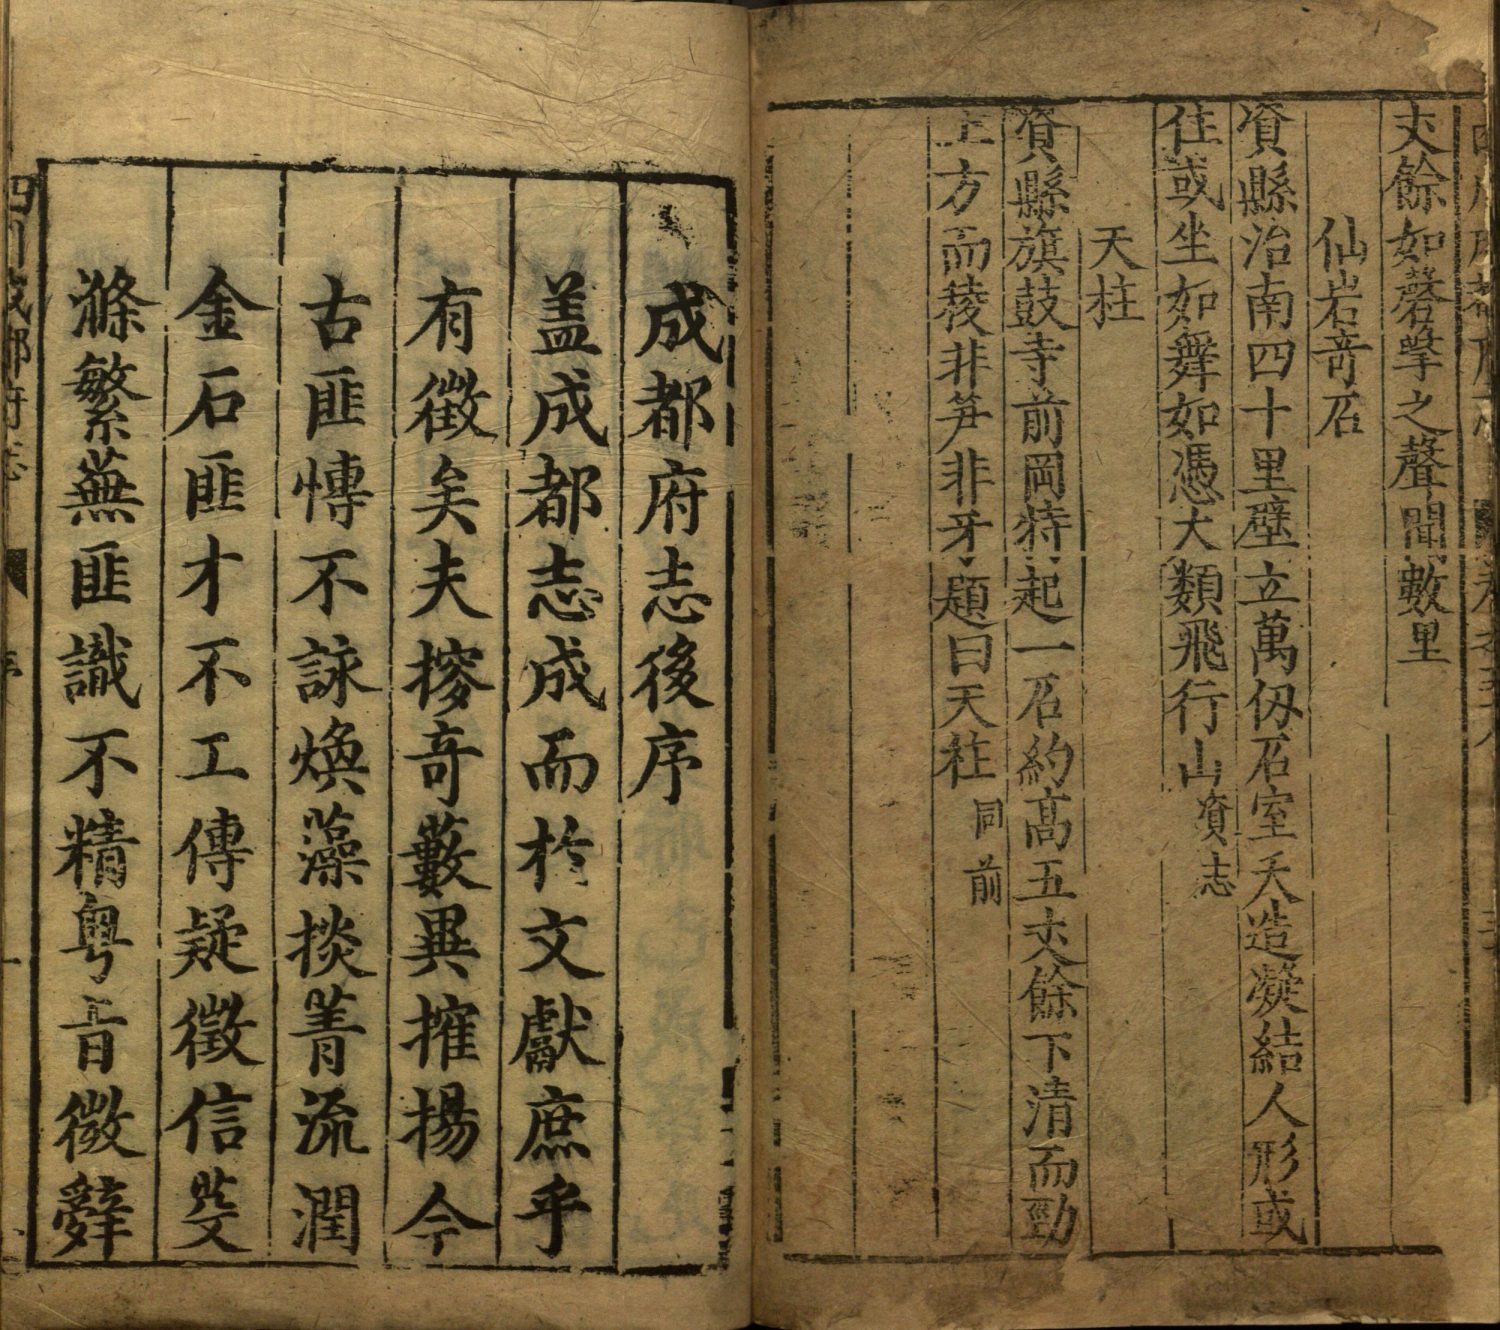 丈餘如磬擊之聲聞數里
仙岩奇石
資縣治南四十里壁立萬仞石室天造凝結人形或
住或坐如舞如憑大類飛行山資志
天柱
資縣旗鼓寺前岡特起一石約高五丈餘下清而勁
上方而稜非笋非牙題曰天柱同前
成都府志後序
盖成都志成而於文獻庶乎
有徵矣夫摉奇藪異摧揚今
古匪慱不詠煥藻掞菁流潤
金石匪才不工傳疑徵信芟
滌繁蕪匪識不精粤音徽辭
四川成都府志 序 一